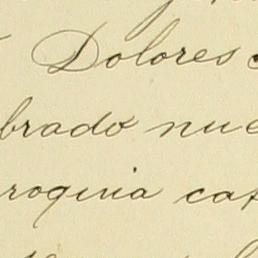 Dolores
brado nue
roquia cat